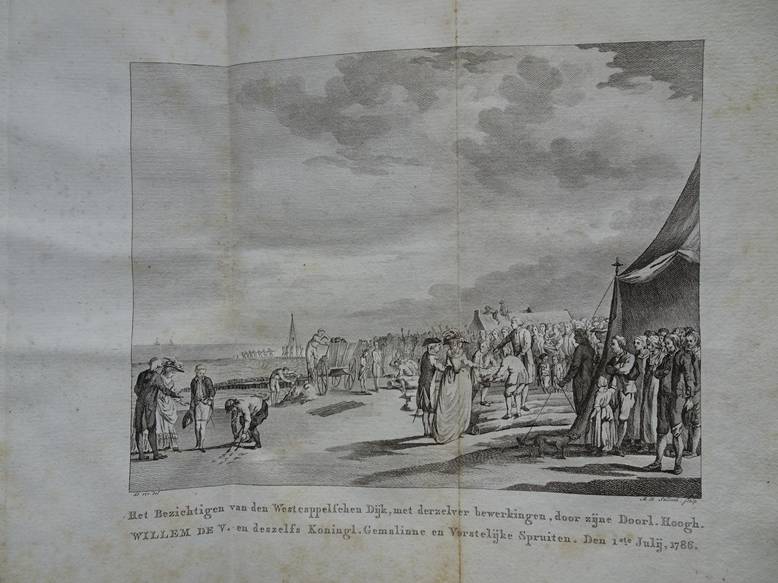 Het Bezichtigen van den Westcappelschen Dijk, met derzelver bewerkingen, door zijne Doorl. Hoogh.
WILLEM DE V. en deszelfs Koningl. Gemalinne en Vorstelijke Spruiten. Den 1ste Julij, 1786.